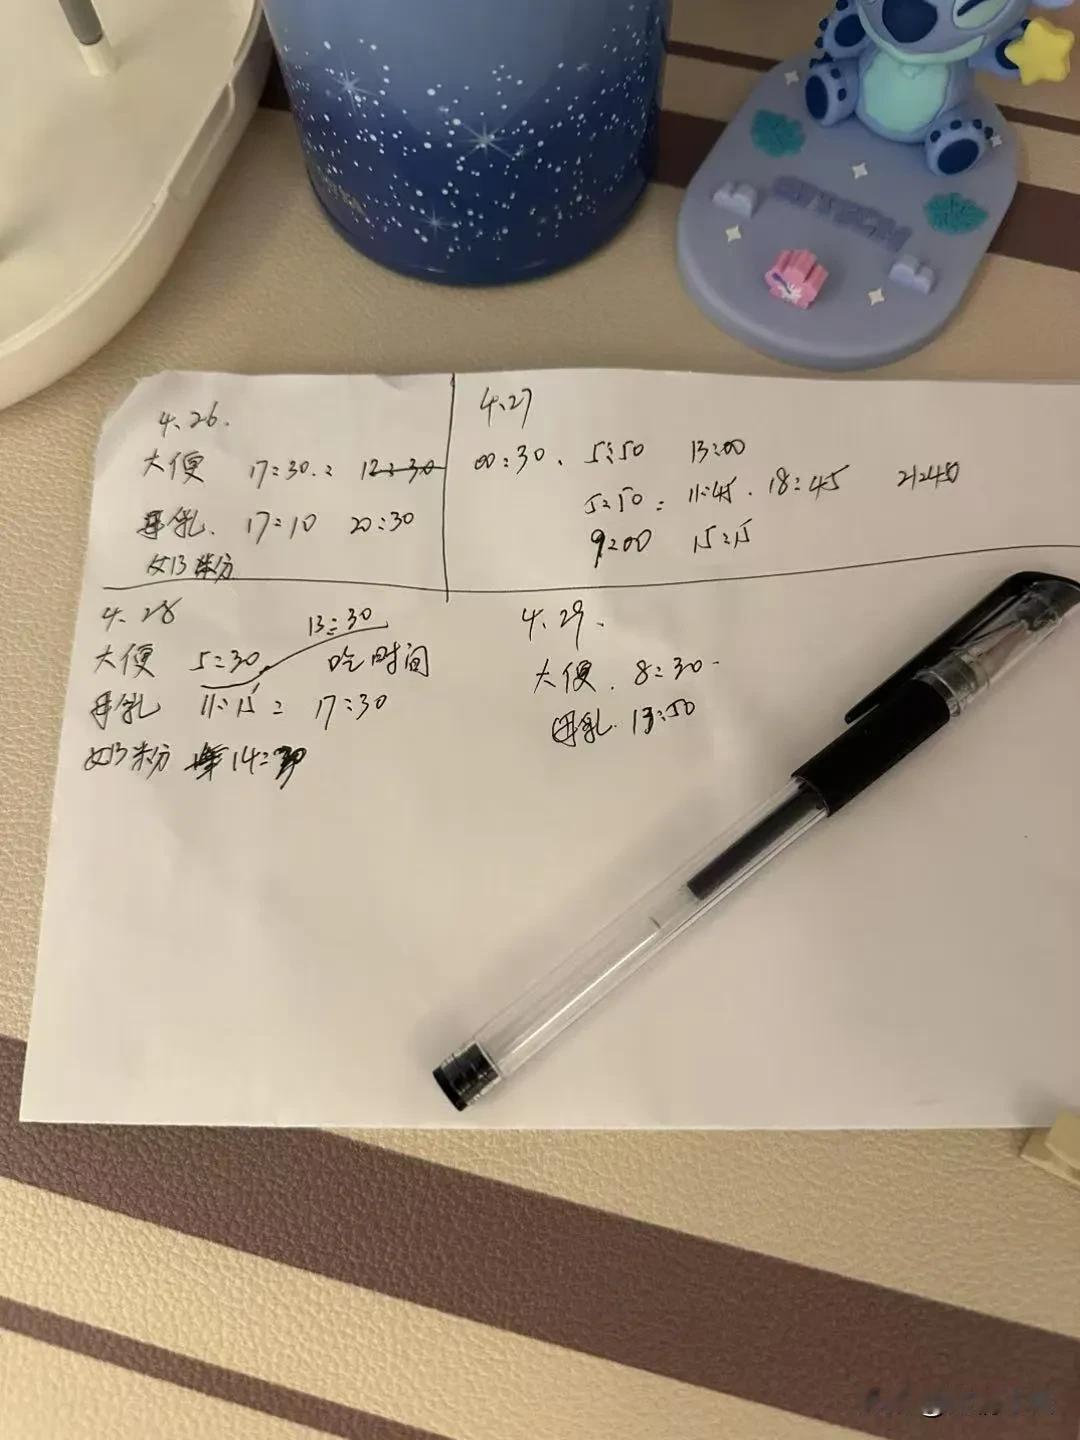 4.26.
大便 17:30.: 12:30
母乳. 17:10 20:30
奶粉
4.27
00:30、 5:50 13:00
5:50: 11:45. 18:45 21:40
9:00 15:15
4.28
13:30
大便 5:30 吃时间
母乳 11:15: 17:30
奶粉 14:30
4.29.
大便. 8:30
母乳. 13:50